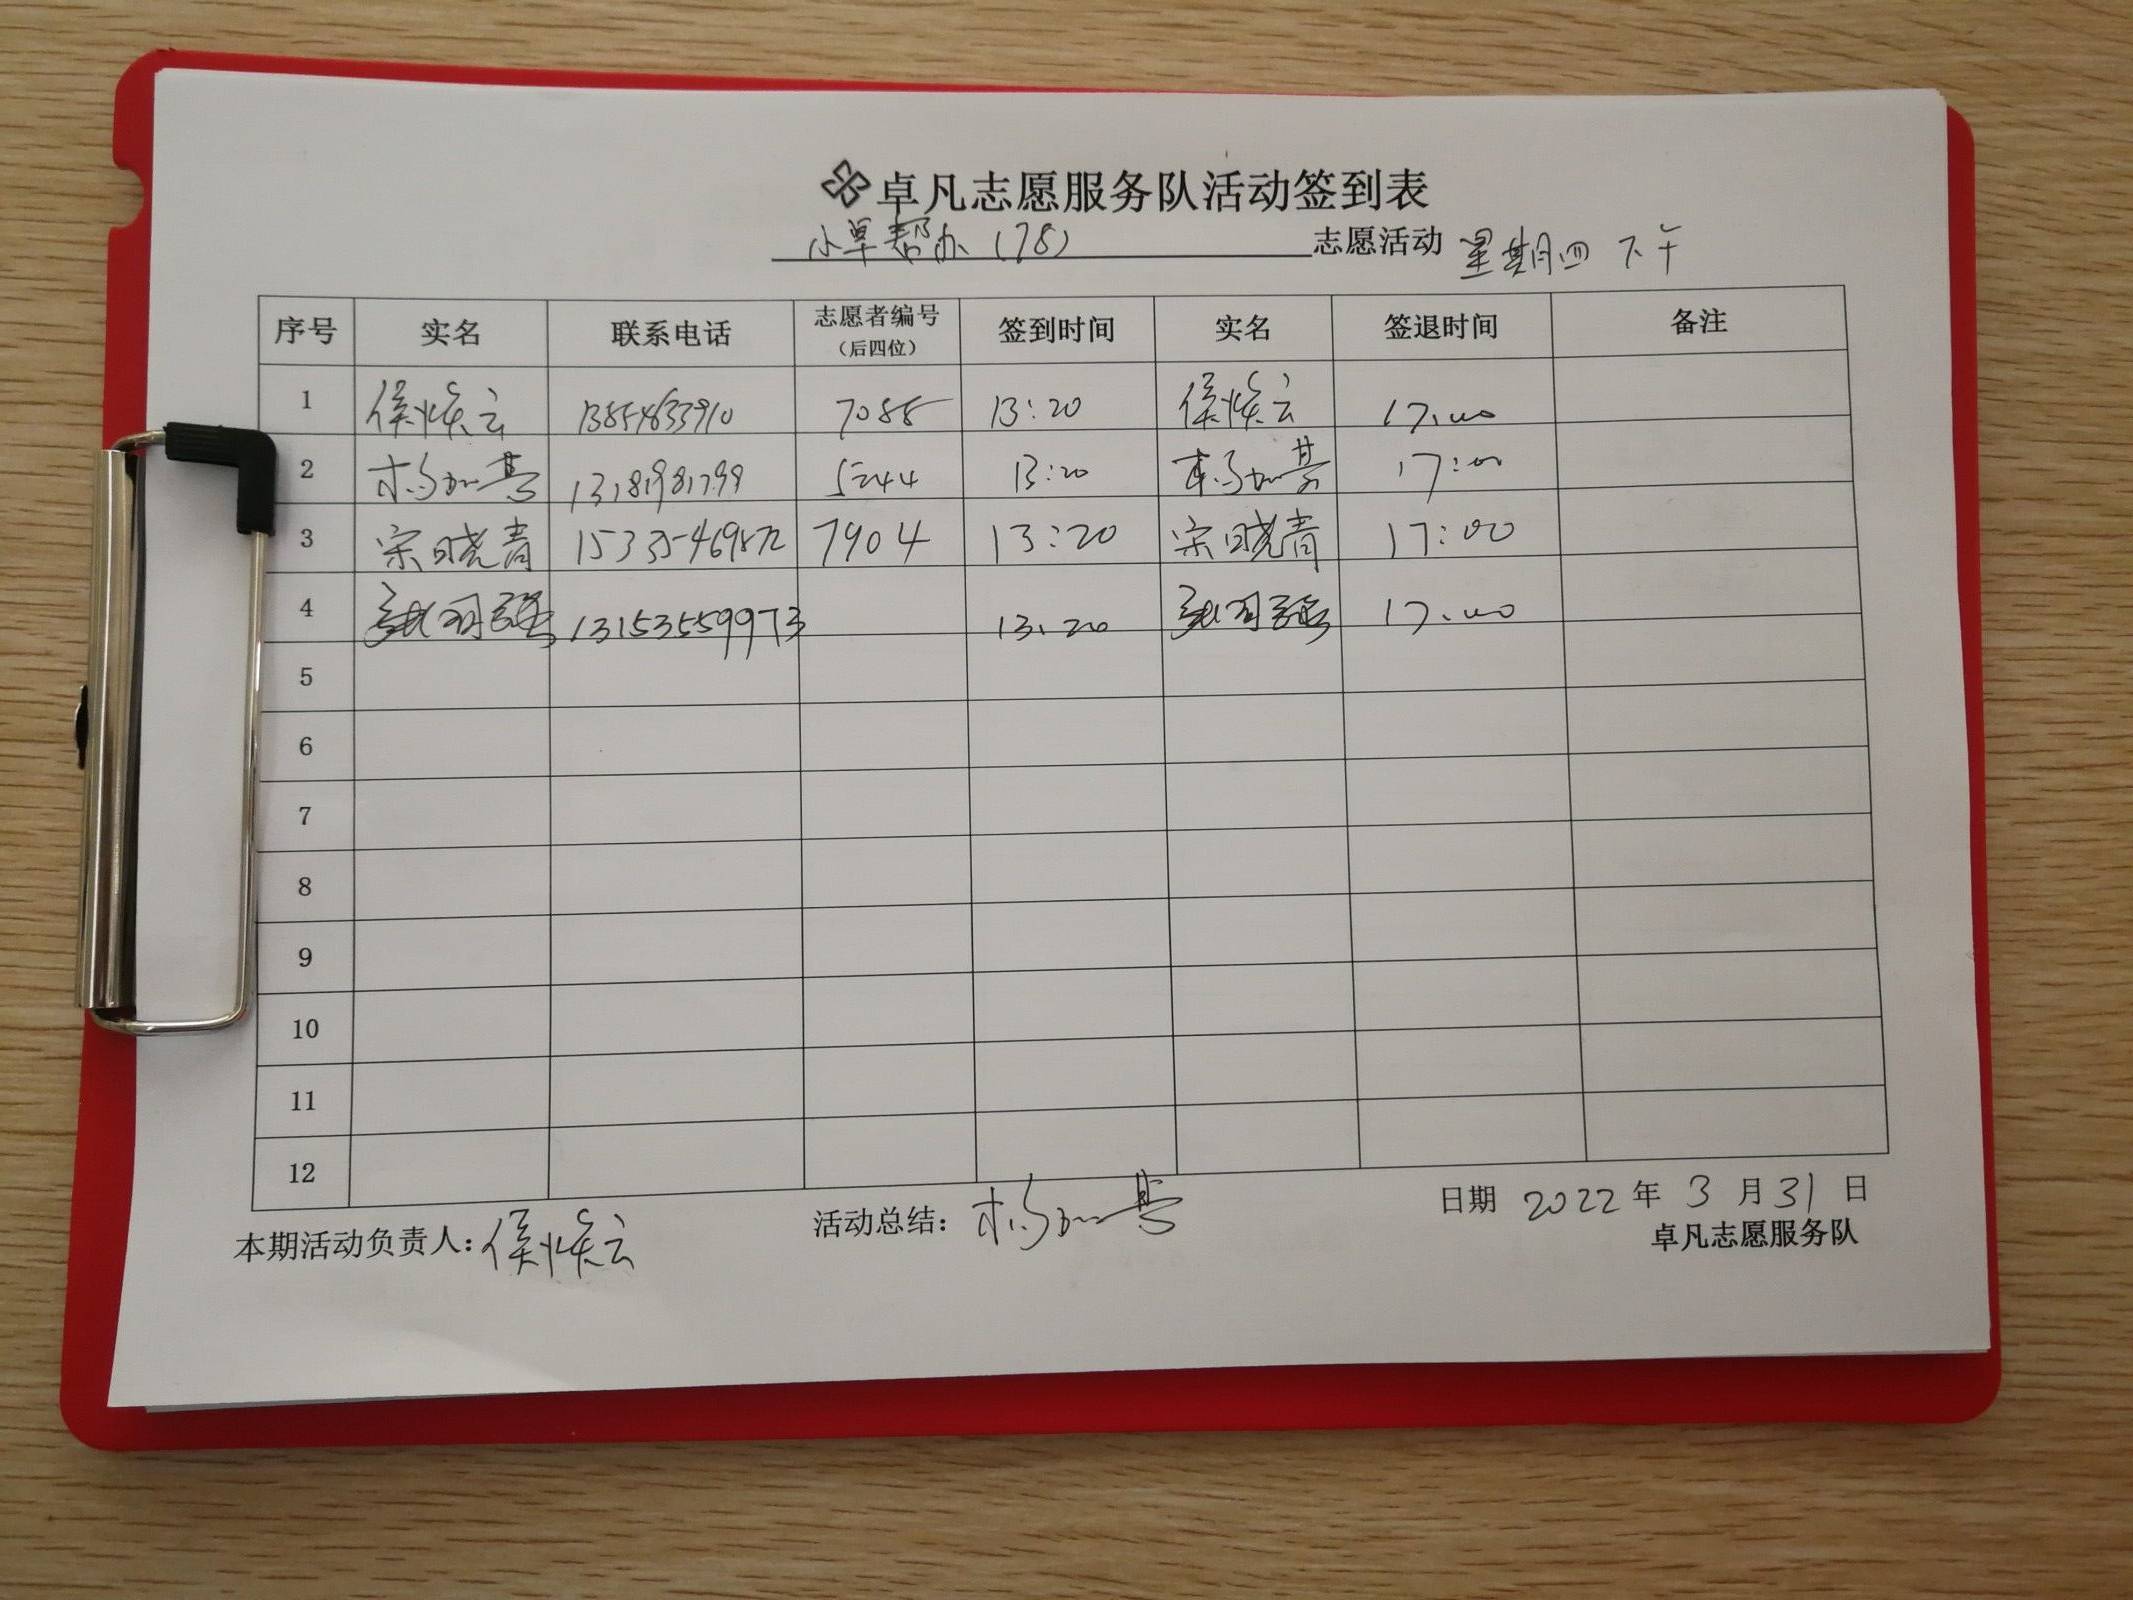 卓凡志愿服务队活动签到表
小卓帮办(78) 志愿活动 星期四 下午
序号 实名 联系电话 志愿者编号（后四位） 签到时间 实名 签退时间 备注
1 侯焕云 7088 13:20 侯焕云 17:00
2 13181981799 5244 13:20 17:00
3 宋晓青 15335469572 7904 13:20 宋晓青 17:00
4 13153559973 13:20 17:00
5
6
7
8
9
10
11
12
本期活动负责人：侯焕云 活动总结： 日期 2022 年 3 月 31 日
卓凡志愿服务队